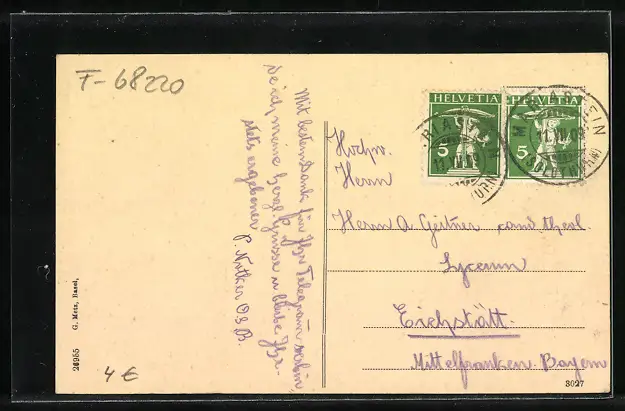 F-68220
Mit bestem Dank für Ihr Telegram verbin
de ich meine herzl. Grüsse u bleibe Ihr
stets ergebener
P. Notker O.S.B.
HELVETIA
5
HELVETIA
5
MARIASTEIN
(SOLOTHURN)
Hochw.
Herrn
Herrn A. Geitner cand theol.
Lyceum
Eichstätt.
Mittelfranken Bayern
26955 G. Metz, Basel.
4 €
3027